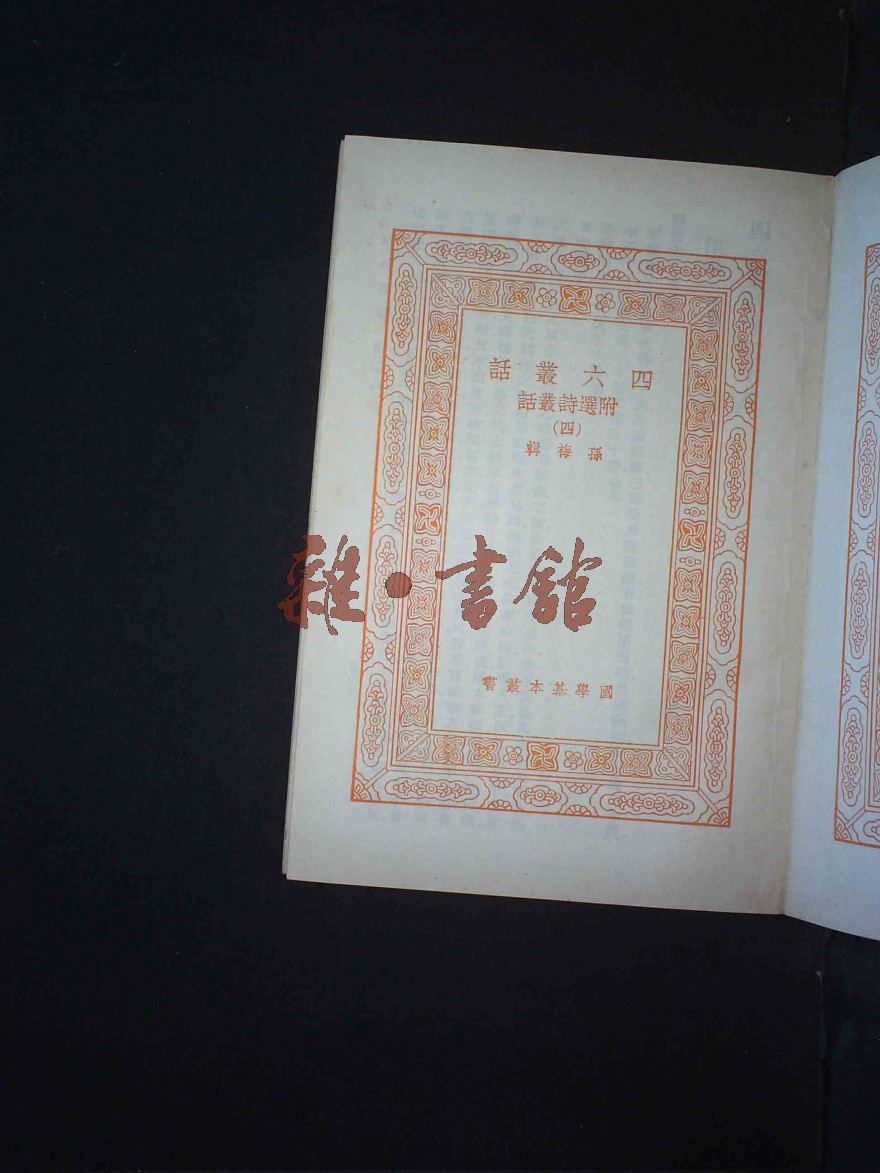 四六叢話
附選詩叢話
(四)
孫梅輯
雜·書館
國學基本叢書